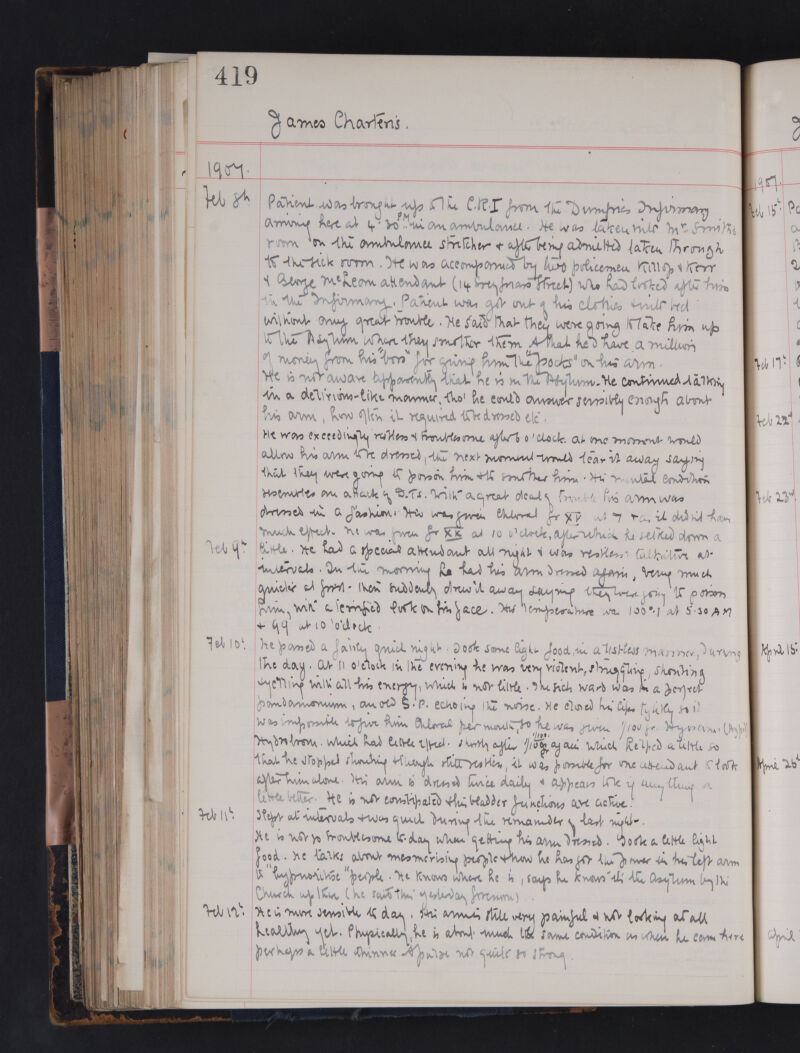 419
James Charteris.
1907.
Feb 8th Patient was brought up to the C.R.I from the Dumfries Infirmary
arriving here at 4.30 PM in an ambulance. He was taken into Mr Smith's
room on the ambulance stretcher & after being admitted taken through
to the sick room. He was accompanied by two policemen Killop & Kerr
& George McLean attendant (14 Greyfriars Street) who had looked after him
in the Infirmary. Patient was got out of his clothes & into bed
without any great trouble. He said that they were going to take him up
to the Asylum where they smother them & that he'd have a million
of money from his "boss" for giving him the "pocks" on his arm.
He is not aware apparently that he is in the Asylum. He continued talking
in a delirious-like manner, tho' he could answer sensibly enough about
his arm, how often it required to be dressed etc.
He was exceedingly restless & troublesome after 6 o'clock. At one moment would
allow his arm to be dressed, the next moment would tear it away saying
that they were going to poison him & to smother him. His mental condition
resembles an attack of D.T.s. With a great deal of trouble his arm was
dressed in a fashion. He was given Chloral gr XV at 7 & as it did not have
much effect he was given gr XX at 10 o'clock, after which he settled down a
Feb 9th little. He had a special attendant all night & was restless & talkative at
intervals. In the morning he had his arm dressed again, very much
quieter at first - then suddenly drew it away saying they were going to poison
him, with a terrified look on his face. His temperature was 100°.1 at 5.30 AM
& 99 at 10 o'clock.
Feb 10th He passed a fairly quiet night. Took some light food, in a listless manner, during
the day. At 11 o'clock in the evening he was very violent, struggling, shouting
& yelling with all his energy, which is not little. The sick ward was in a perfect
pandamonium, an old G.P. echoing the noise. He closed his lips tightly so it
was impossible to give him Chloral per mouth, so he was given 1/100 gr Hyoscin
Hydrobrom. which had little effect. Shortly after 1/100 gr again which helped a little so
that he stopped shouting & though still restless, it was possible for one attendant to look
after him alone. His arm is dressed twice daily & appears to be if anything a
little better. He is not constipated & his bladder functions are active.
Feb 11th Slept at intervals & was quiet during the remainder of last night.
He is not so troublesome to day when getting his arm dressed. Took a little light
food. He talks about mesmerising people & how he has got the power in his left arm
to "hypnotise" people. He knows where he is, says he knows it's the Asylum by the
Church up there (he said this yesterday forenoon).
Feb 12th He is more sensible to day. His arm is still very painful & not looking at all
healthy yet. Physically he is about much the same condition as when he came here
perhaps a little thinner & pulse not quite so strong.
1907.
Feb 15th
Feb 17th
Feb 22nd
Feb 23rd
April 15th
April 26th
April